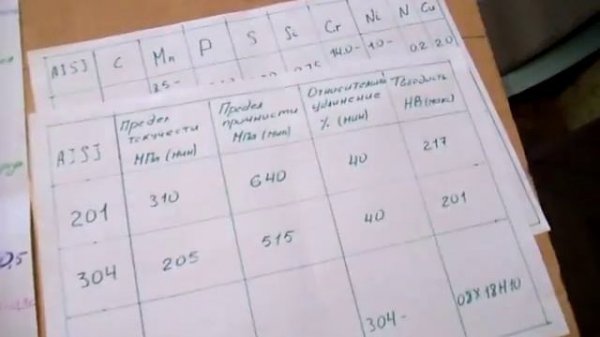 AISI C Mn P S Si Cr Ni N Cu
14.0- 1.0- 0.2 2.0
AISI Предел текучести МПа (мин) Предел прочности МПа (мин) Относительное удлинение % (мин) Твёрдость НВ (макс)
201 310 640 40 217
304 205 515 40 201
304- 08Х18Н10